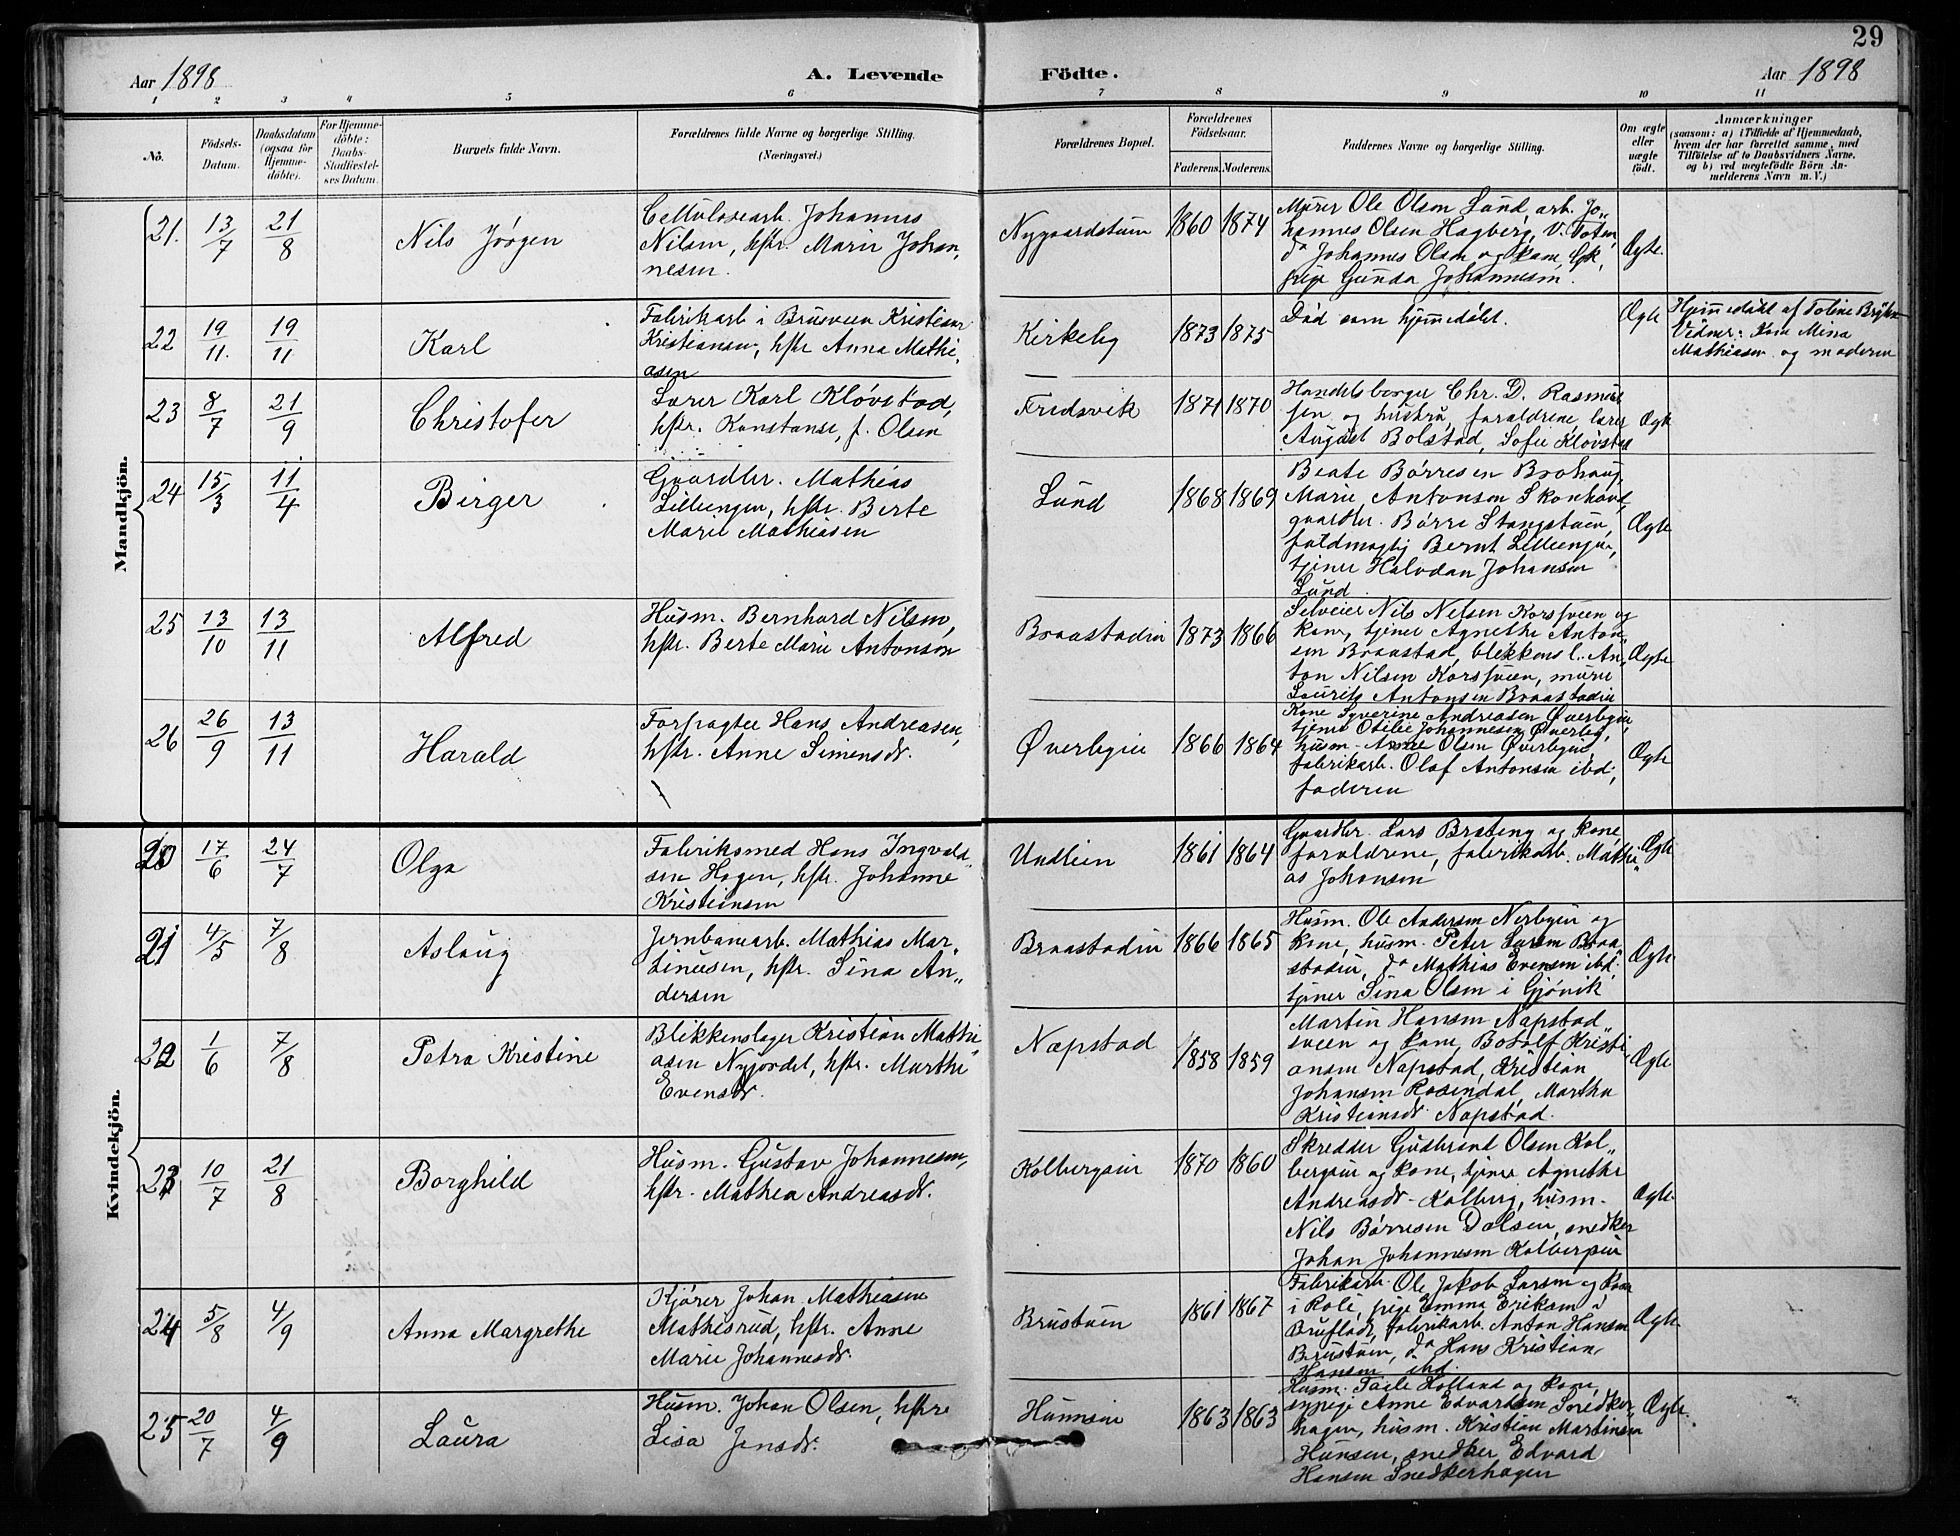 29
Aar 1898 A. Levende Födte. Aar 1898
1 2 3 4 5 6 7 8 9 10 11
No. Födsels-Datum. Daabsdatum (ogsaa for Hjemmedöbte). For Hjemmedöbte: Daabs-Stadfæstelses Datum. Barnets fulde Navn. Forældrenes fulde Navne og borgerlige Stilling. (Næringsvei.) Forældrenes Bopæl. Forældrenes Födselsaar. Faderens. Moderens. Faddernes Navne og borgerlige Stilling. Om ægte eller uægte födt. Anmærkninger (saasom: a) i Tilfælde af Hjemmedaab, hvem der har forrettet samme, med Tilföielse af to Daabsvidners Navne, og b) ved uegtefödte Börn Anmelderens Navn m. V.)
Mandkjön.
21. 13/7 21/8 Nils Jörgen
Cellulosearb. Johannes
Nilsen, hstr. Marie Johan„
nesen.
Nygaardstuen 1860 1874
Murer Ole Olsen Lund, arb. Jo„
hannes Olsen Hagberg, V. Toten,
do Johannes Olsen og kone, Gk,
pige Gunda Johannesen.
Ægte.
22 19/11. 19/11 Karl
Fabrikarb i Brusveen Kristian
Kristiansen, hstr Anna Mathi„
asen
Kirkeby 1873 1875
Död som hjemmedöbt.
Ægte
Hjemmedöbt af Toline
Vidner: Kone Mina
Mathiasen og moderen
23 8/7 21/9 Christofer
Lærer Karl Klövstad,
hstr. Konstanse, f. Olsen
Fredsvik 1871 1870
Handelsborger Chr. D. Rasmus
sen og hustru, forældrene, lærer
August Bolstad, Sofie Klövstad
Ægte
24 15/3 11/4 Birger
Gaardbr. Mathias
Lilleengen, hstr. Berte
Marie Mathiasen
Lund 1868 1869
Beate Börresen Brohaug,
Marie Antonsen Skonhovd,
gaardbr. Börre Stangstuen,
fuldmægtig Bernt Lilleengen,
tjener Halvdan Johansen
Lund.
Ægte
25 13/10 13/11 Alfred
Husm. Bernhard Nilsen,
hstr. Berte Marie Antonsen
Braastadeie 1873 1866
Selveier Nils Nelsen Korsveen og
kone, tjener Agnethe Anton„
sen Braastad, blekkensl. An„
ton Nilsen Korsveen, murer
Laurits Antonsen Braastadeie
Ægte
26 26/9 13/11 Harald
Forpagter Hans Andreasen,
hstr. Anne Simensdr.
Øverbyeie 1866 1864
Kone Syverine Andreasen Øverbyeie,
tjener Otilie Johannesen Øverby,
husm. Olsen Øverbyeie,
fabrikarb. Olaf Antonsen ibd,
faderen
Ægte
Kvindekjön.
20 17/6 24/7 Olga
Fabriksmed Hans Ingvald
sen Hagen, hstr. Johanne
Kristiansen
Undlien 1861 1864
Gaardbr. Lars Brateng og kone,
forældrene, fabrikarb. Mathi„
as Johansen
Ægte
21 4/5 7/8 Aslaug
Jernbanearb. Mathias Mar„
tinusen, hstr. Sina An„
dersen
Braastadeie 1866 1865
Husm. Ole Andersen Nerbyeie og
kone, husm. Peter Larsen Braa„
stadeie, do Mathias Evensen ibd.
tjener Sina Olsen i Gjövik
Ægte
22 1/6 7/8 Petra Kristine
Blikkenslager Kristian Mathi„
asen Nyjordet, hstr. Marthe
Evensdr.
Næpstad 1858 1859
Martin Hansen Næpstad„
sveen og kone, Botolf Kristi„
ansen Næpstad, Kristian
Johansen Rosendal, Martha
Kristiansdr. Næpstad.
Ægte
23 10/7 21/8 Borghild
Husm. Gustav Johannesen,
hstr. Mathea Andreasdr.
Kolbergeie 1870 1860
Skredder Gudbrand Olsen Kol„
bergeie og kone, tjener Agnethe
Andreasdr. Kolberg, husm.
Nils Börresen Dalseie, snedker
Johan Johannesen Kolbergeie
Ægte
24 5/8 4/9 Anna Margrethe
Kjörer Johan Mathiasen
Mathisrud, hstr. Anne
Marie Johannesdr.
Brustuen 1861 1867
Fabrikarb. Ole Jakob Larsen og kone
i Roli, pige Emma Eriksen
Bruflodt, fabrikarb. Anton Hansen
Brustuen, do Hans Kristian
Hansen ibd.
Ægte
25 20/7 4/9 Laura
Husm. Johan Olsen, hstr
Lisa Jensdr.
Hunseie 1863 1863
Husm. Holland og kone,
sypige Anne Edvardsen Snedker„
hagen, husm. Kristian Martinsen
Hunseie, snedker Edvard
Hansen Snedkerhagen
Ægte.